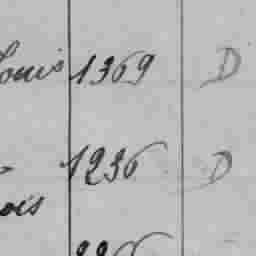 Louis 1369 D
1236 D
ois